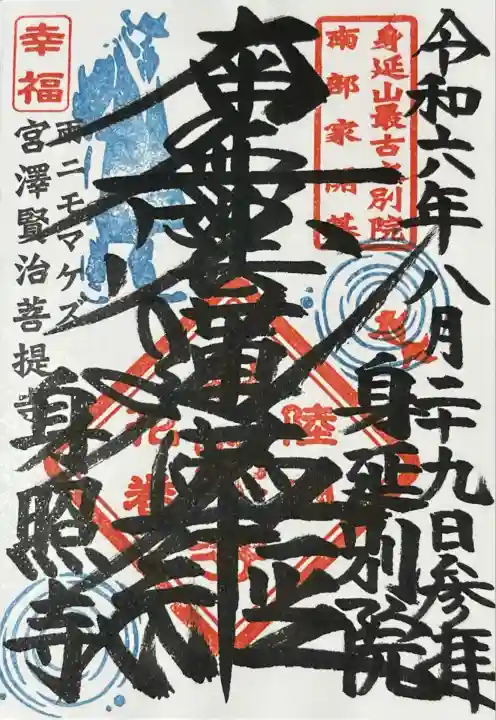 令和六年八月二十九日参拝
身延山最古之別院
南部家開基
身延別院
南無妙法蓮華経
立正
安国
陸中
花巻
幸福
雨ニモマケズ
宮澤賢治菩提寺
身照寺